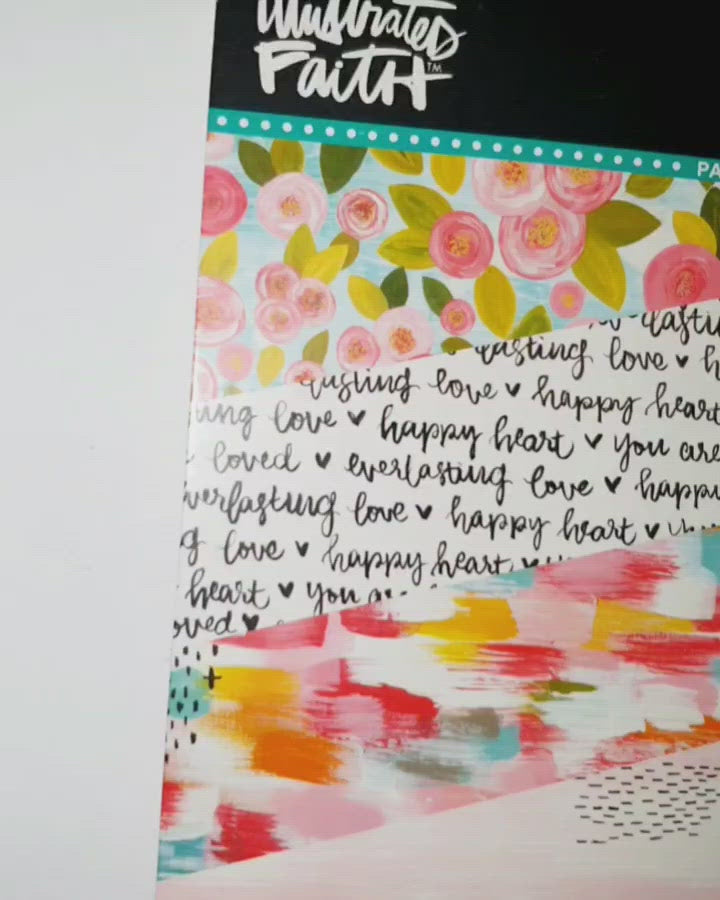 illustrated
Faith™
PA
lasti
lasting love ♥ h
lasting love ♥ happy heart
ing love ♥ happy heart ♥ you are
loved ♥ everlasting love ♥ happy
verlasting love ♥ happy heart ♥
g love ♥ happy heart ♥
heart ♥ you
oved ♥